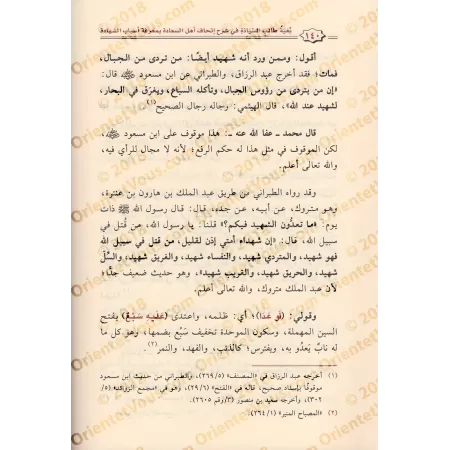 ١٤٠
بُغيَةُ طالبِ السيَادَةِ فِي شرح إتحاف أهل السعادة بمعرفة أسباب الشهادة
أقول: وممن ورد أنه شهيد أيضًا: من تردى من الجبال،
فمات؛ فقد أخرج عبد الرزاق، والطبراني عن ابن مسعود ﷺ قال:
«إن من يتردى من رؤوس الجبال، وتأكله السباع، ويغرَق في البحار،
لشهيد عند الله»، قال: الهيثمي: ورجاله رجال الصحيح(١)
قال محمد ـ عفا الله عنه ـ: هذا موقوف على ابن مسعود
لكن الموقوف في مثل هذا له حكم الرفع؛ لأنه لا مجال للرأي فيه،
والله تعالى أعلم.
وقد رواه الطبراني من طريق عبد الملك بن هارون بن عنترة،
وهو متروك، عن أبيه، عن جده، قال: قال رسول الله ﷺ ذات
يوم: «ما تعدُّون الشهيد فيكم؟» قلنا: يا رسول الله، من قُتل في
سبيل الله، قال: «إن شهداء أمتي إذن لقليل، من قتل في سبيل الله
فهو شهيد، والمتردي شهيد، والنفساء شهيد، والغريق شهيد، والسُّلّ
شهيد، والحريق شهيد، والغريب شهيد»، وهو حديث ضعيف جدًّا؛
لأن عبد الملك متروك، والله تعالى أعلم.
وقولي: (أو عَدَا)؛ أي: ظلمه، واعتدى (عَلَيهِ سَبْعٌ) بفتح
السين المهملة، وسكون الموحدة تخفيف سَبُع بضمها، وهو كل ما
له نابٌ يَعدُو به، ويفترس؛ كالذئب، والفهد، والنمر(٢).
(١) أخرجه عبد الرزاق في «المصنف» (٢٦٩/٥)، والطبراني من حديث ابن مسعود
موقوفًا بإسناد صحيح، قاله في «الفتح» (٢٩/٦)، وهو في «مجمع الزوائد» (٥/
٣٠٢)، وأخرجه سعيد بن منصور (٣/رقم ٢٦٠٥).
(٢) «المصباح المنير» (٢٦٤/١).